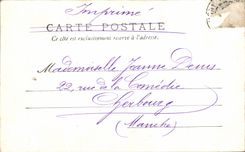 Imprimé
CARTE POSTALE
Ce côté est exclusivement réservé à l'adresse.
Mademoiselle Jeanne Denis
22, rue de la Comédie
Cherbourg
(Manche)